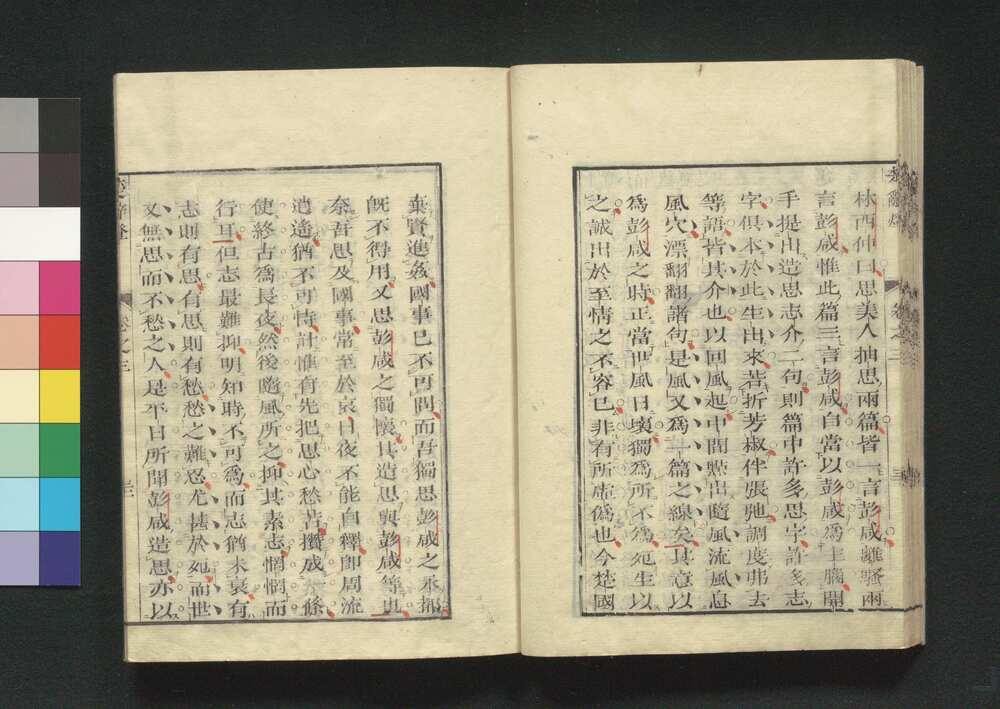 林西仲曰思美人抽思兩篇皆一言彭咸離騷兩
言彭咸惟此篇三言彭咸自當以彭咸爲主腦開
手提出造思志介二句則篇中許多思字許多志
字俱本於此生出來若折芳椒伴張弛調度弗去
等語皆其介也以回風起中間點出隨風流風息
風穴漂翻翻諸句是風又爲一篇之線矣其意以
爲彭咸之時正當世風日壞獨爲所不爲死生以
之誠出於至情之不容已非有所虛僞也今楚國
棄賢進姦國事已不可問而吾獨思彭咸之水都
既不得用又思彭咸之獨懷其造思與彭咸等也
奈吾思及國事常至於哀日夜不能自釋即周流
逍遙猶不可恃計惟有先把思心愁苦攢成一條
使終古爲長夜然後隨風所之抑其素志惘惘而
行耳但志最難抑明知時不可爲而志猶未衰有
志則有思有思則有愁愁之難忍尤甚於死而世
又無思而不愁之人是平日所聞彭咸造思亦以
楚辭燈
卷之三
三